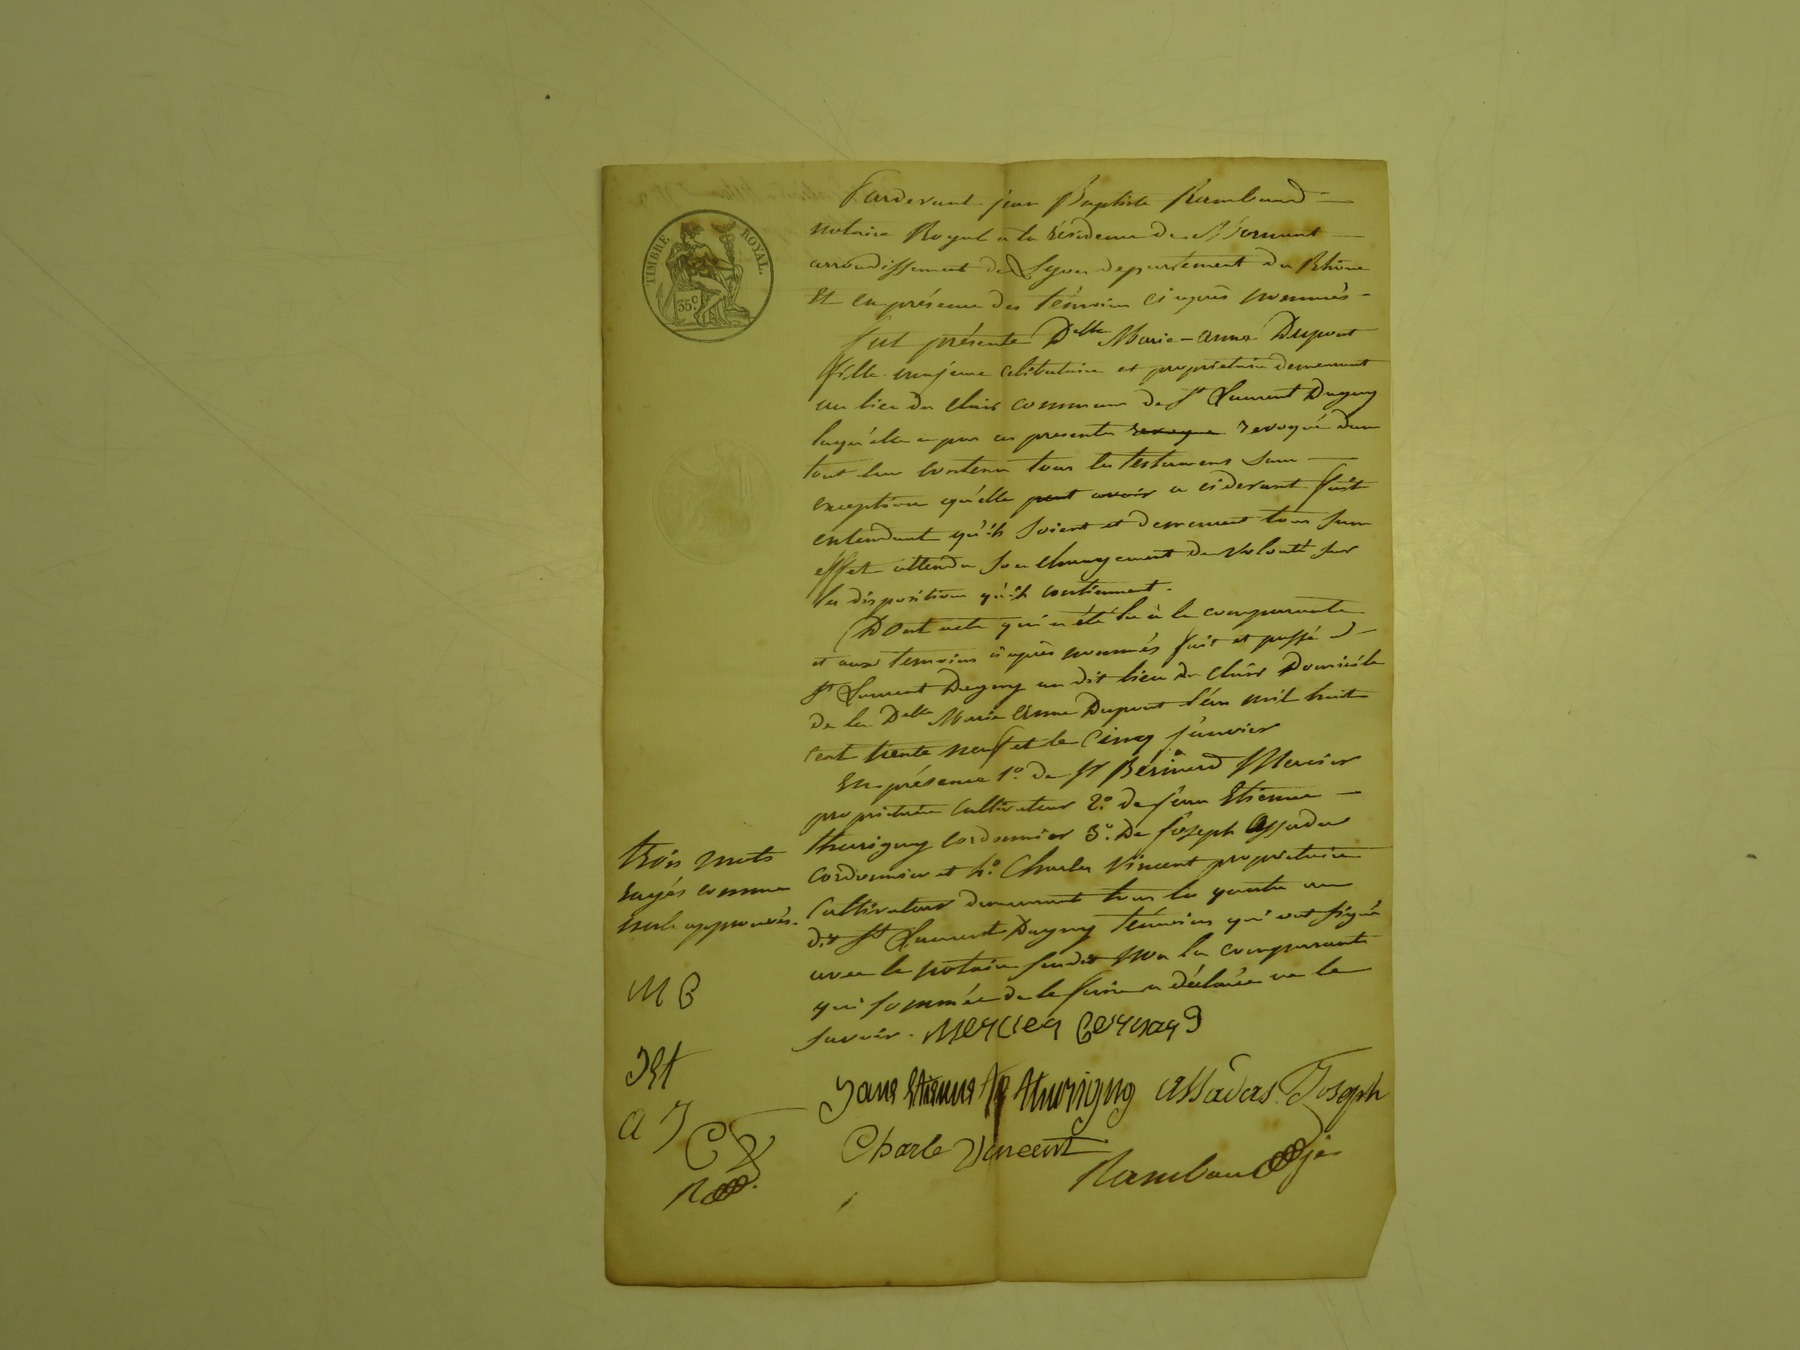 TIMBRE ROYAL.
35.c
Pardevant jean Baptiste Rambaud
notaire Royal à la résidence de Mornant
arrondissement de Lyon departement du Rhône
Et en présence des témoins ci après nommés
fut présente Delle Marie-anne Dupont
fille majeure celibataire et propriétaire demeurant
au lieu du clair commune de St Laurent Dagny
laquelle a par ces presentes revoque revoqué dans
tout leur contenu tous les testamens sans
exception qu'elle peut avoir a cidevant fait
entendant qu'ils soient et demeurent tous sans
effet attendu son changement de volonté sur
les dispositions qu'ils contiennent.
Dont acte qui a été lu à la comparante
et aux temoins ci après nommés fait et passé à
St Laurent Dagny au dit lieu du clair Domicile
de la Delle Marie anne Dupont L'an mil huit
cent trente neuf et le Cinq janvier
En présence 1o. de Sr Bernard Mercier
propriétaire Cultivateur 2o. de jean Etienne
thurigny Cordonnier 3o. De joseph assadas
Cordonnier et 4o. Charles Vincent propriétaire
Cultivateur demeurant tous les quatre au
dit St Laurent Dagny témoins qui ont signé
avec le notaire susdit non la comparante
qui sommée de le faire a déclarée ne le
savoir. Mercier Bernard
trois mots
rayés comme
nuls approuvés.
M B
JEt
A J
C V
R
Jane Etienne thurigny assadas Joseph
Charle Vincent
Rambaud